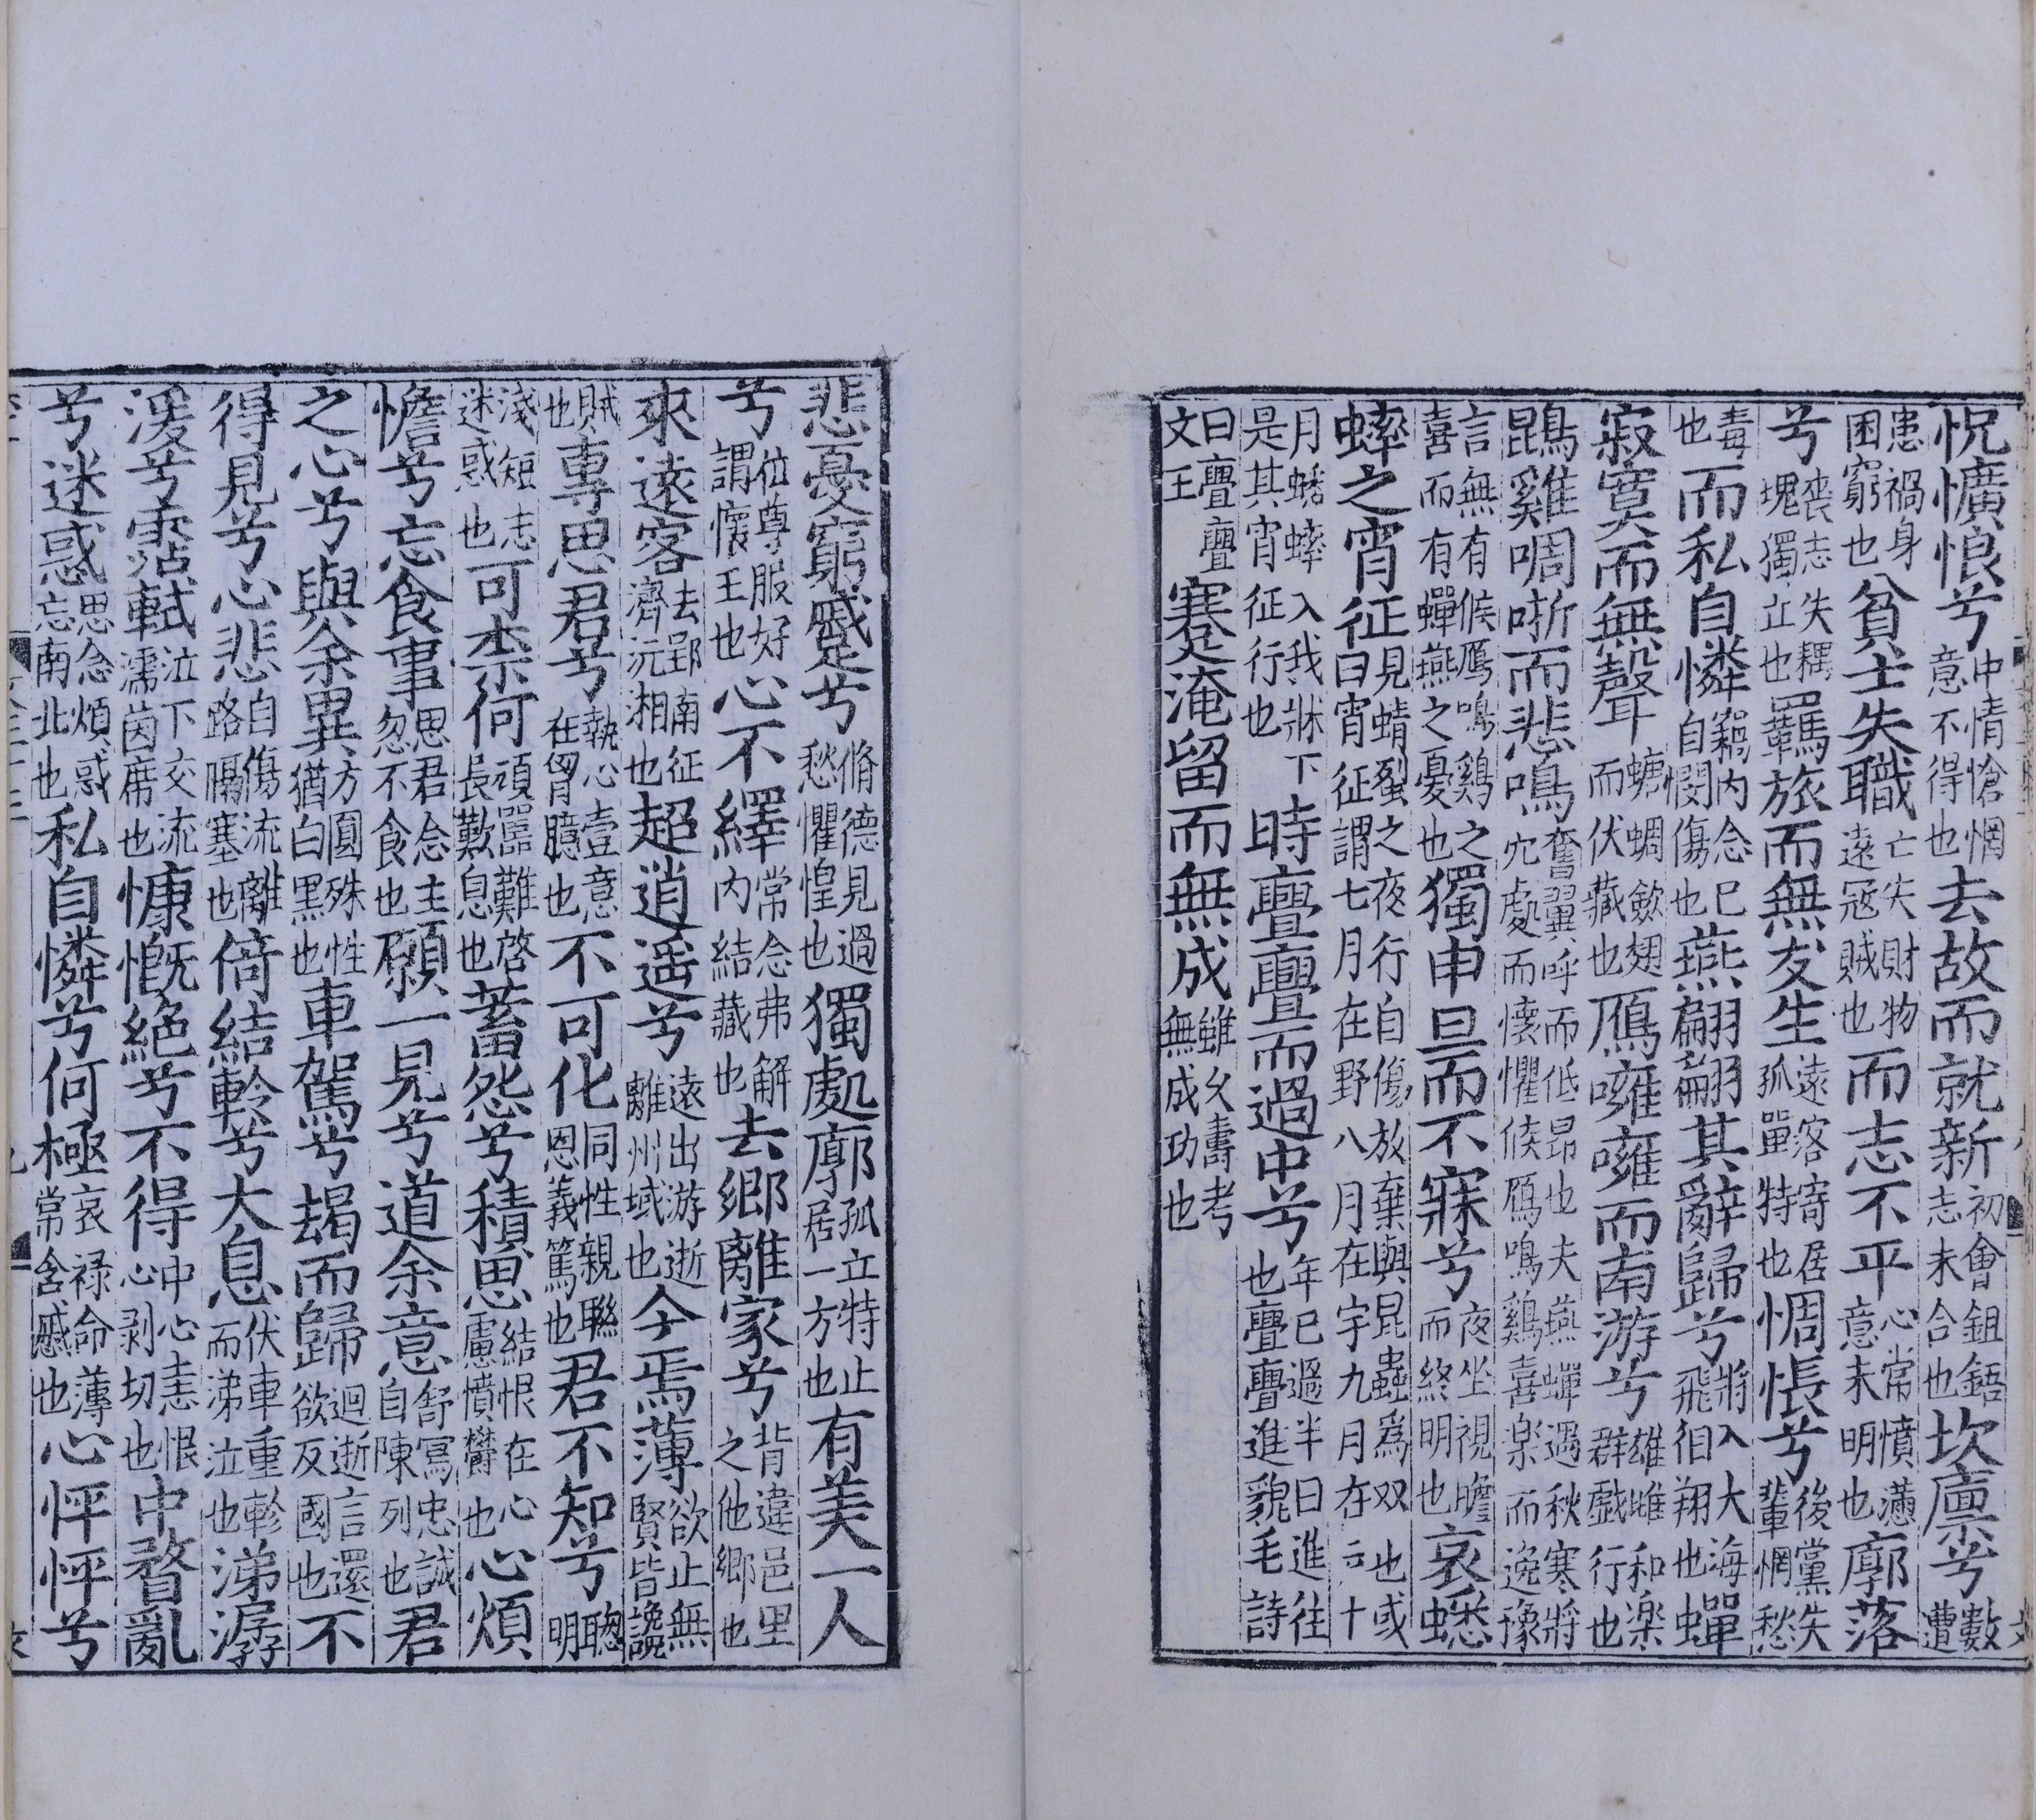 怳懭悢兮中情愴惘意不得也去故而就新初會鉏鋙志未合也坎廩兮數遭
患禍身困窮也貧士失職亡失財物遠冦賊也而志不平心常憤懣意未明也廓落
兮喪志失耦塊獨立也羇旅而無友生遠客寄居孤單特也惆悵兮後黨失輩惘愁
毒也而私自憐竊内念已自閔傷也燕翩翩其辭歸兮將入大海飛徊翔也蟬
寂寞而無聲螗蜩歛翅而伏藏也鴈嗈嗈而南游兮雄雌和楽群戯行也
鵾雞啁哳而悲鳴奮翼呼而低昂也夫燕蟬遇秋寒將穴處而懷懼候鴈鳴鷄喜楽而逸豫
言無有候鴈鳴鷄之喜而有蟬燕之憂也獨申旦而不寐兮夜坐視瞻而終明也哀蟋
蟀之宵征見蜻蛚之夜行自傷放棄與昆蟲爲双也或曰宵征謂七月在野八月在宇九月在戸十
月蟋蟀入我牀下是其宵征行也時亹亹而過中兮年已過半日進往也亹亹進貌毛詩
曰亹亹文王蹇淹留而無成雖久壽考無成功也
悲憂窮蹙兮脩德見過愁懼惶也獨處廓孤立特止居一方也有美一人
兮位尊服好謂懷王也心不繹常念弗解内結藏也去鄉離家兮背違邑里之他鄉也
來遠客去郢南征濟沅湘也超逍遥兮遠出游逝離州域也今焉薄欲止無賢皆讒
賊也專思君兮執心壹意在胷臆也不可化同性親聯恩義篤也君不知兮聰明
淺短志迷惑也可柰何頑嚚難啓長歎息也蓄怨兮積思結恨在心慮憤欝也心煩
憺兮忘食事思君念主忽不食也願一見兮道余意舒寫忠誠自陳列也君
之心兮與余異方圓殊性猶白黑也車駕兮朅而歸迴逝言還欲反國也不
得見兮心悲自傷流離路隔塞也倚結軨兮大息伏車重軫而涕泣也涕潺
湲兮霑軾泣下交流濡茵席也慷慨絶兮不得中心恚恨心剥切也中瞀亂
兮迷惑思念煩惑忘南北也私自憐兮何極哀禄命薄常含慼也心怦怦兮